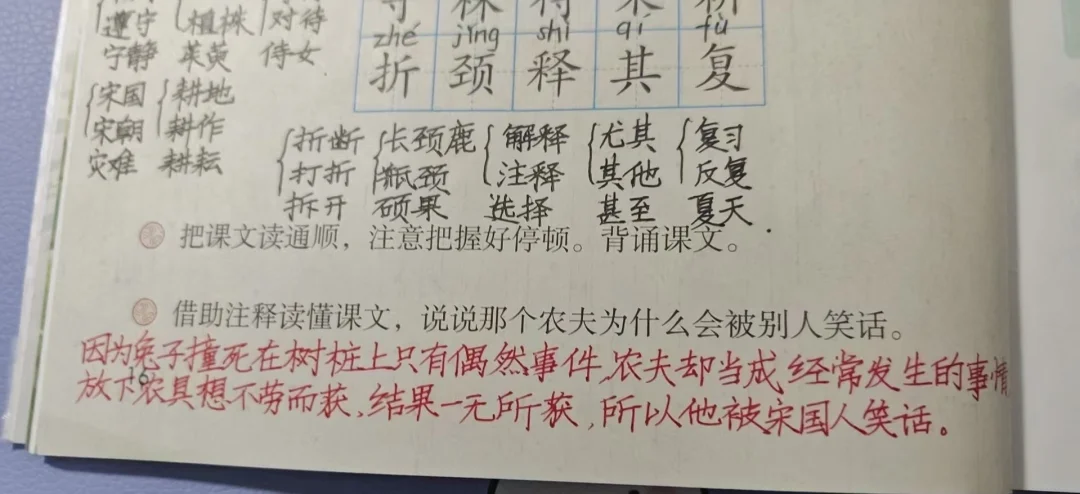 守 株 待 耕
zhé jǐng shì qí fù
折 颈 释 其 复
遵守 植株 对待
宁静 茱萸 侍女
宋国 耕地
宋朝 耕作
灾难 耕耘
折断 长颈鹿 解释 尤其 复习
打折 瓶颈 注释 其他 反复
拆开 硕果 选择 甚至 夏天
把课文读通顺，注意把握好停顿。背诵课文。
借助注释读懂课文，说说那个农夫为什么会被别人笑话。
因为兔子撞死在树桩上只有偶然事件,农夫却当成经常发生的事情
16
放下农具想不劳而获,结果一无所获,所以他被宋国人笑话。